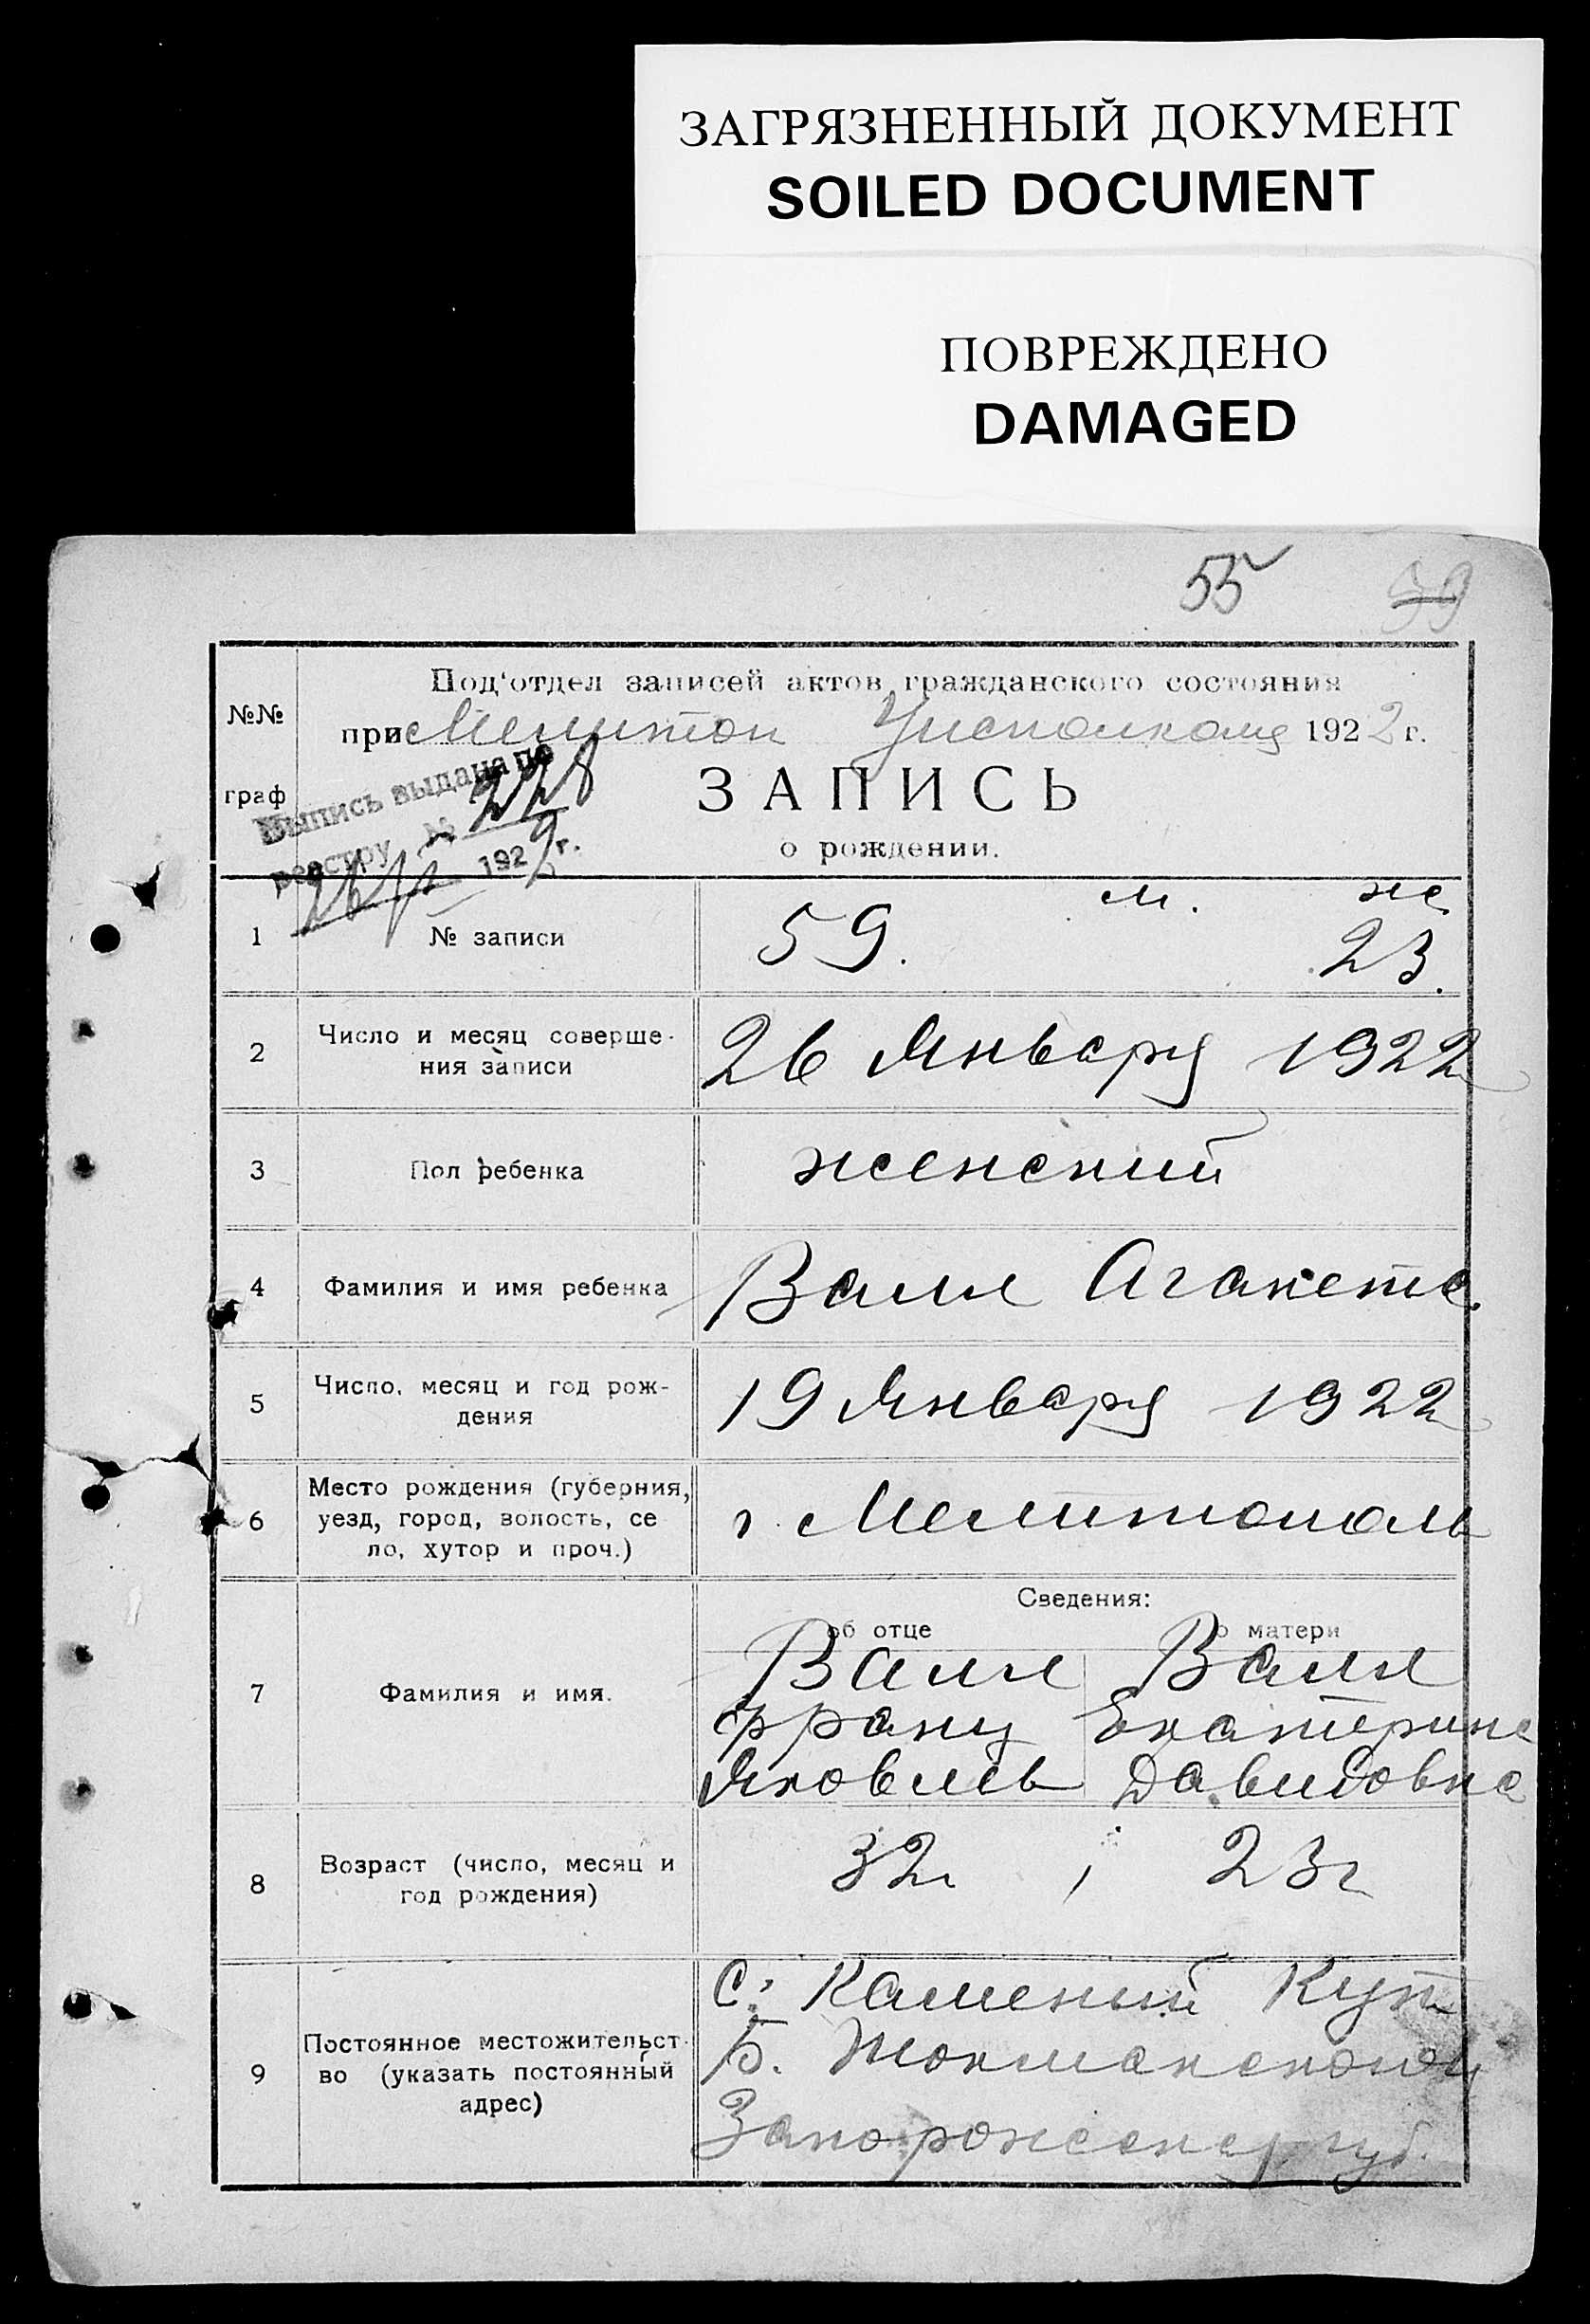 ЗАГРЯЗНЕННЫЙ ДОКУМЕНТ
SOILED DOCUMENT
ПОВРЕЖДЕНО
DAMAGED
55 59
№№ граф
Под'отдел записей актов гражданского состояния
при Мелитоп Уисполкома 1922 г.
ЗАПИСЬ
о рождении.
Выпись выдана по
реестру № 228
1929 г.
1 № записи 59. м. ж
23.
2 Число и месяц соверше-
ния записи 26 Января 1922
3 Пол ребенка женский
4 Фамилия и имя ребенка Валл Аганета.
5 Число, месяц и год рож-
дения 19 Января 1922
6 Место рождения (губерния,
уезд, город, волость, се
ло, хутор и проч.) г. Мелитополь
Сведения:
об отце о матери
7 Фамилия и имя. Валл Валл
Франц Екатерина
Яковлев Давидовна
8 Возраст (число, месяц и
год рождения) 32 г 23 г
9 Постоянное местожительст-
во (указать постоянный
адрес)
С. Каменый Кут
Б. Токмакской
Запорожской губ.